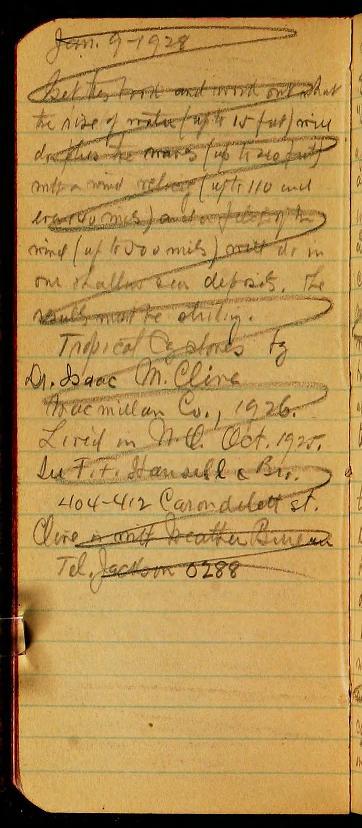 Jan. 9-1928
Get this book and work out what
the rise of water (up to 15 feet) will
do plus the waves (up to 20 feet)
with a wind velocity (up to 110 and
even miles) and a of the
wind (up to 500 miles) will do in
our shallow sea deposits. The
results must be striking.
Tropical Cyclones by
Dr. Isaac M. Cline
Macmillan Co., 1926.
Lived in N.O. Oct. 1925.
See F.F. Hansell & Bro.
404-412 Carondelett st.
Cline is with Weather Bureau
Tel. Jackson 0288